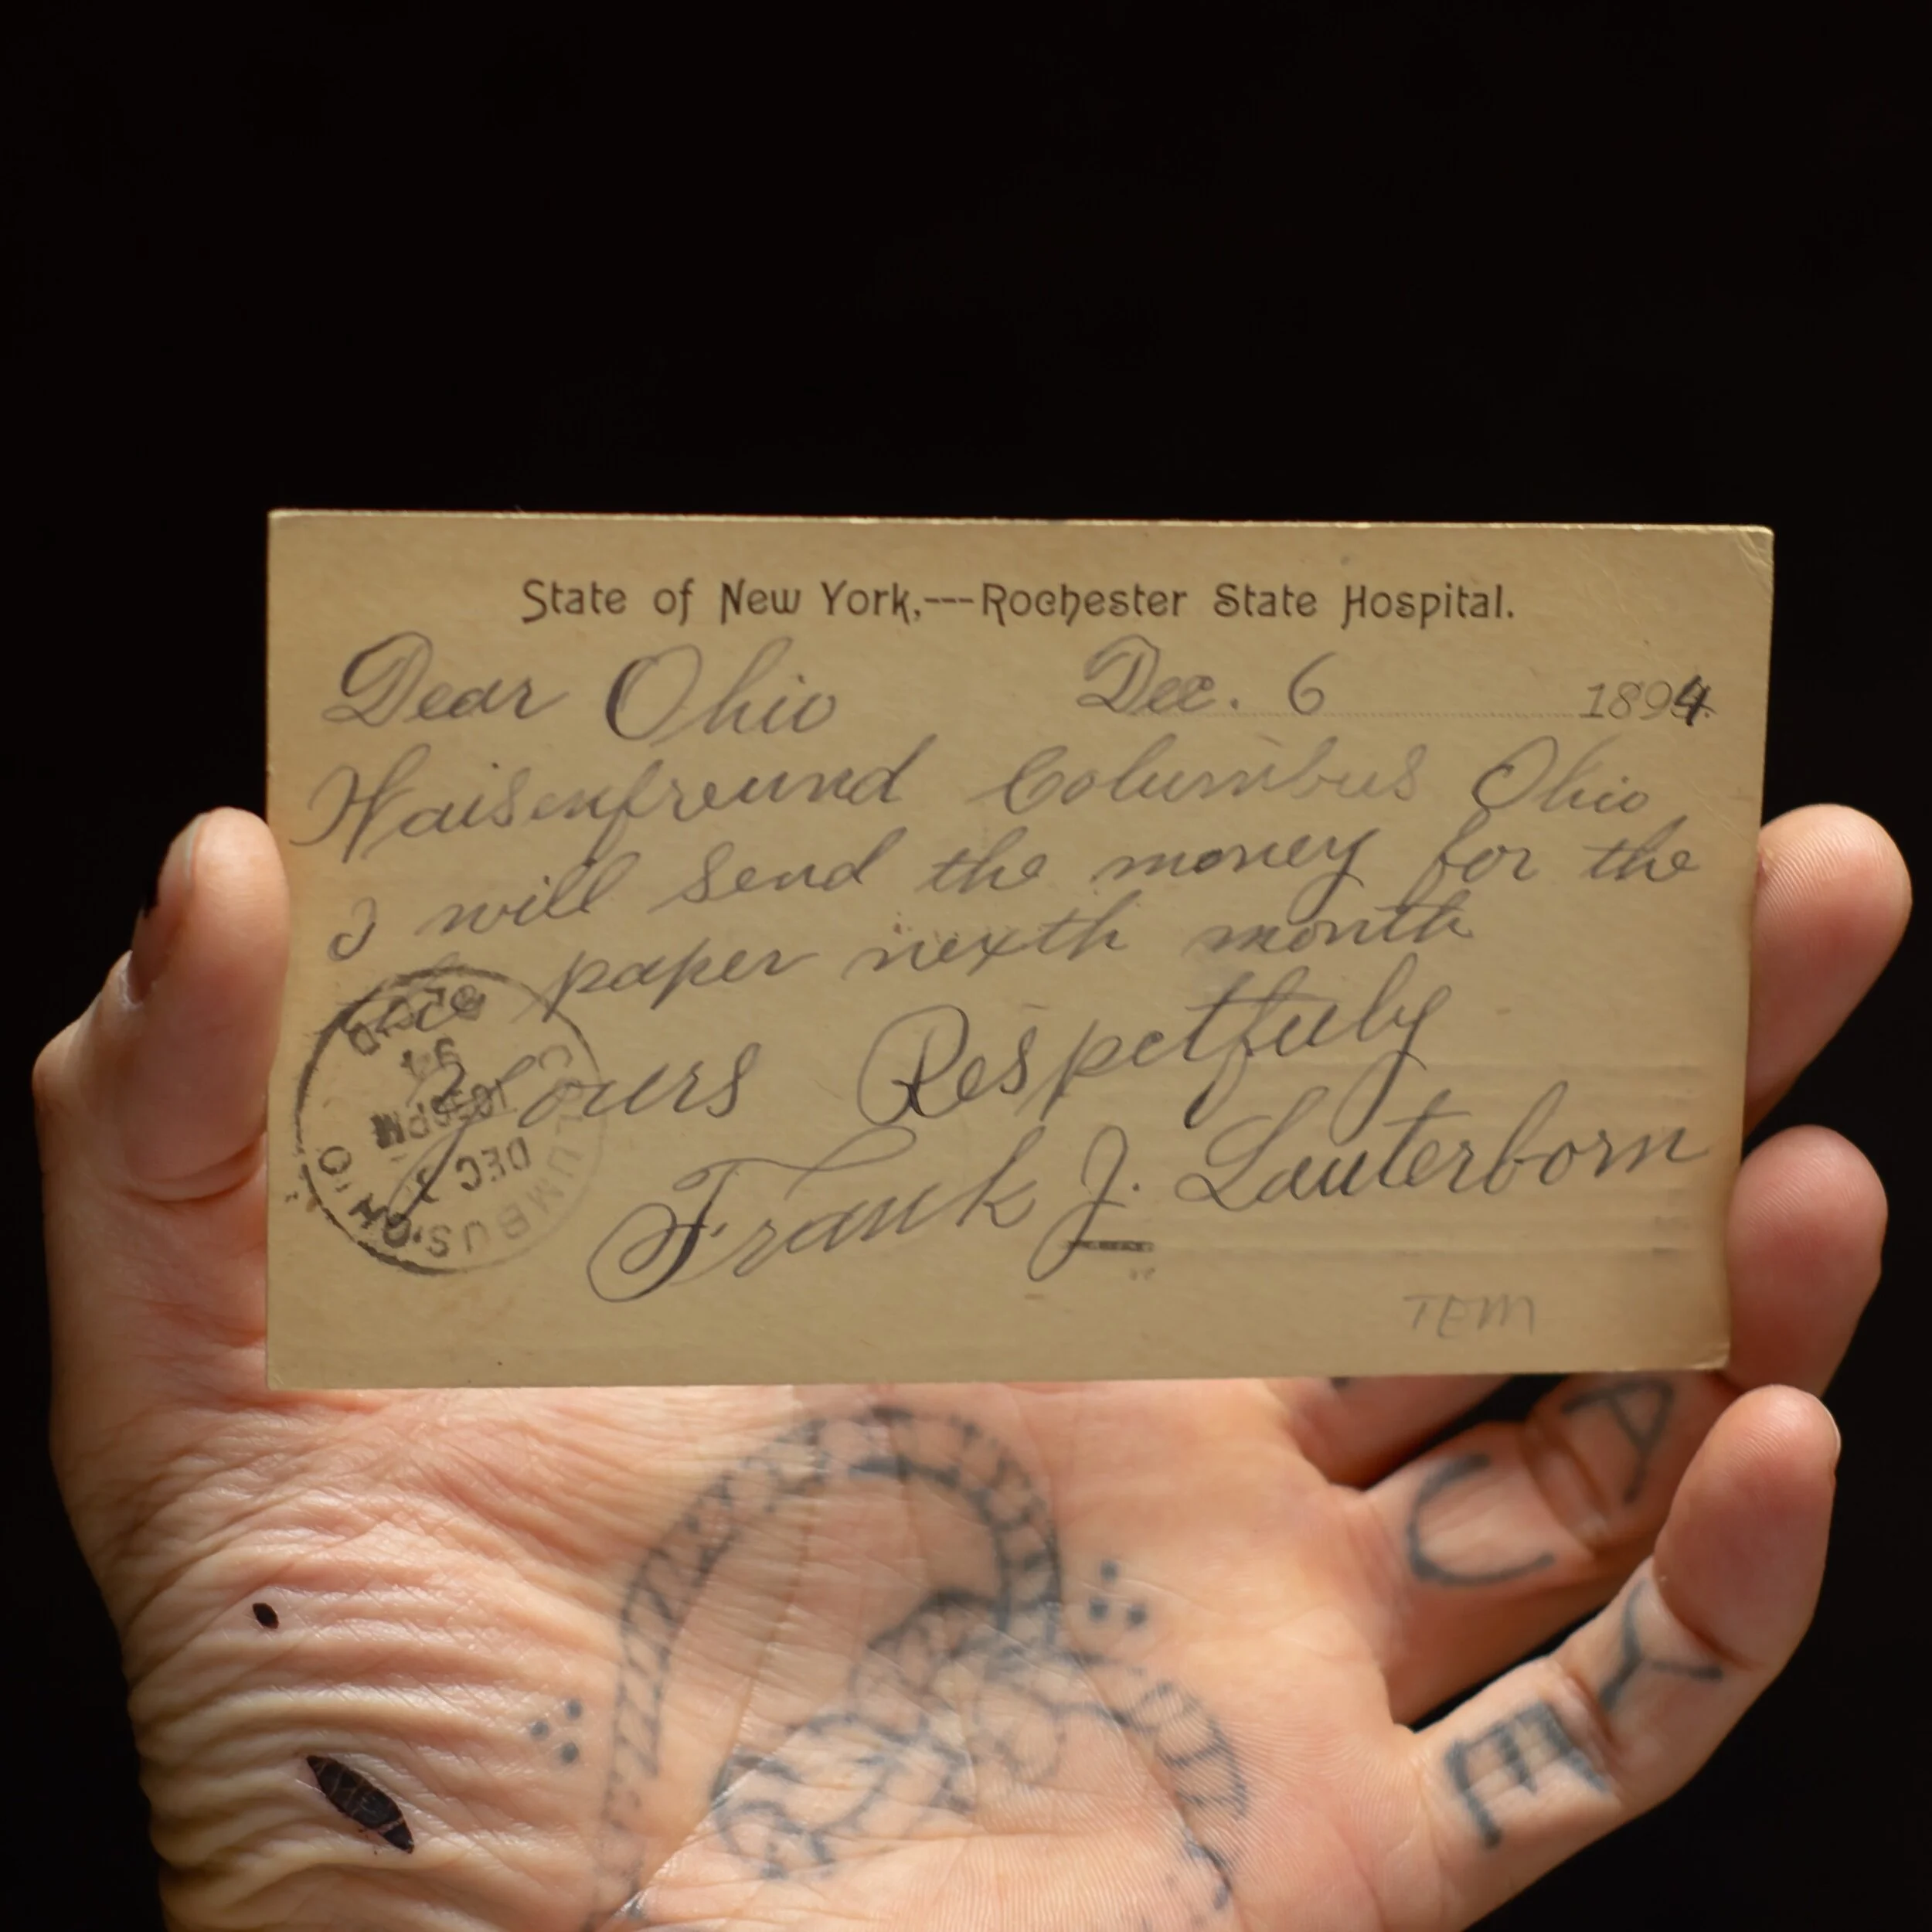 State of New York,---Rochester State Hospital.
Dear Ohio Dec. 6 1894
Waisenfreund Columbus Ohio
I will send the money for the
paper nexth month
yours Respetfuly
Frank J. Lauterborn
TEM
COLUMBUS, OHIO
DEC 1030PM
94
REC'D
A
C
Y
E